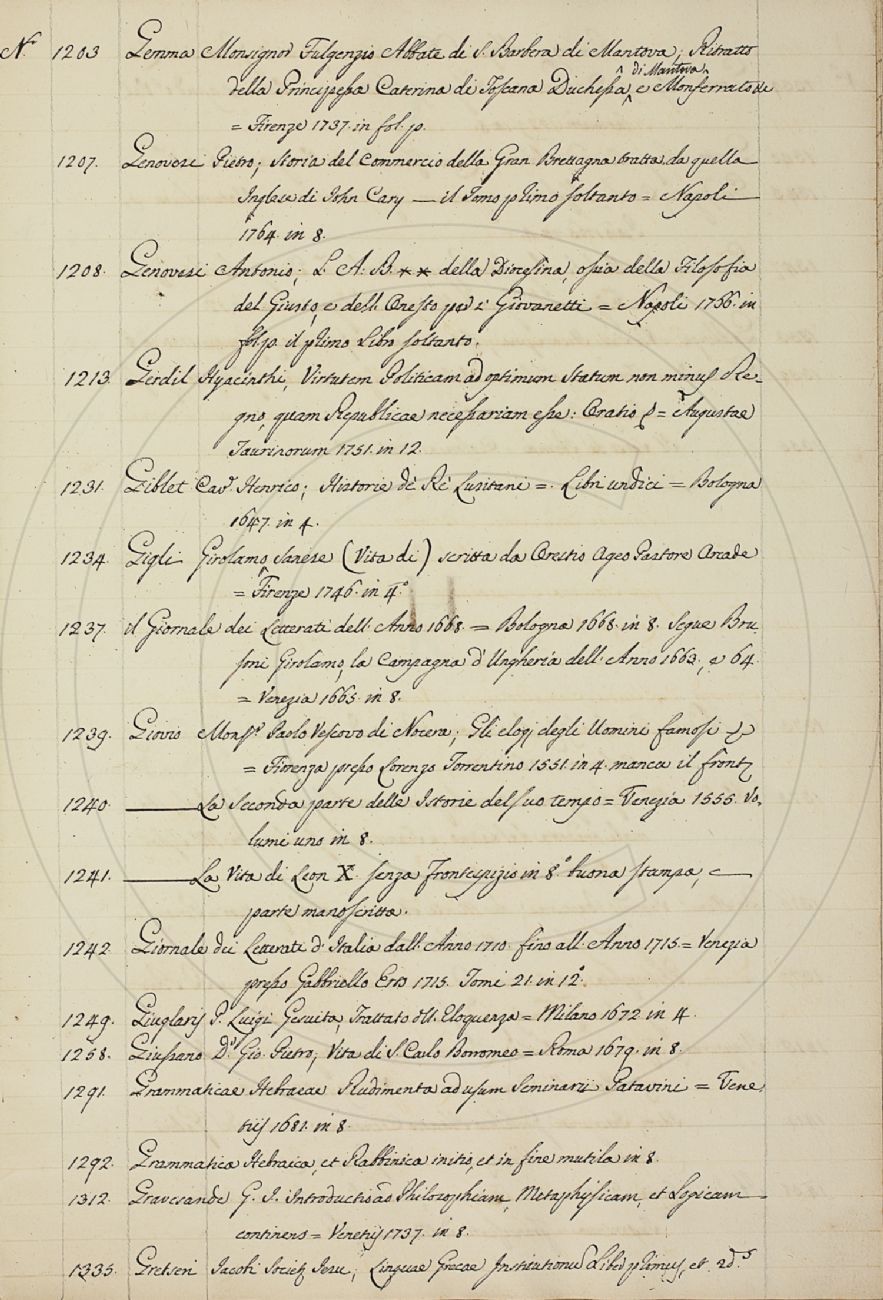 N.° 1203 Gemma Monsignor Fulgenzio Abbate di S. Barbera di Mantova; Ritratto
della Principessa Caterina di Toscana Duchessa di Mantova, e Monferrato &c
= Firenze 1737. in fol. p.
1207. Genovesi Pietro; Storia del Commercio della Gran Brettagna tratta da quella
Inglese di John Cary — il Tomo primo soltanto = Napoli
1764. in 8.
1208. Genovesi Antonio; L. A. B. ** della Diocesina, ossia della Filosofia
del Giusto, e dell' Onesto per i Giovanetti = Napoli 1766. in
fol. p. il primo Libro soltanto.
1213. Gerdil Hyacinthi, Virtutem Politicam ad optimum Statum non minus Re-
gno, quam Republicae necessariam esse: Oratio = Augustae
Taurinorum 1751. in 12.
1231. Giblet Cav.r Henrico; Historie de' Ré Lusitani =. Libri undici = Bologna
1647. in 4.
1234. Gigli Girolamo Sanese (Vita di) scritta da Oresbio Ageo Pastore Arcade
= Firenze 1746. in 4.°
1237. il Giornale dei Letterati dell' Anno 1668. = Bologna 1668. in 8. Segue Bru-
soni Girolamo, la Campagna d'Ungheria dell' Anno 1663., e 64.
= Venezia 1665. in 8.
1239. Giovio Mons.r Paolo Vescovo di Nocera; Gli elogj degli Uomini famosi
= Fiorenza presso Lorenzo Torrentino 1551. in 4. manca il front.
1240. ——— La Seconda parte delle Istorie del suo tempo = Venezia 1555. Vo-
lumi uno in 8.
1241. ——— La Vita di Leon X. senza frontespizio in 8.° buona stampa, e
parte manoscritta.
1242. Giornale dei Letterati d'Italia dall' Anno 1710. fino all' Anno 1715. = Venezia
presso Gabbriello Erts 1715. Tomi 21. in 12.°
1249. Giuglaris P. Luigi Gesuita, Trattato dell' Eloquenza = Milano 1672. in 4.
1258. Giussano D.r Gio: Pietro; Vita di S. Carlo Borromeo = Roma 1679. in 8.
1291. Grammaticae Hebraeae Rudimenta ad usum Seminarii Patavini = Vene-
tiis 1681. in 8.
1292. Grammatica Hebraica, et Rabbinica initio, et in fine mutila in 8.
1312. Gravesande G. J. Introductio ad Philosophiam, Metaphysicam, et Logicam
continens = Venetiis 1737. in 8.
1335. Gretseri Jacobi Societ. Jesu; Linguae Grecae Institutionum Liber primus, et 2.dus